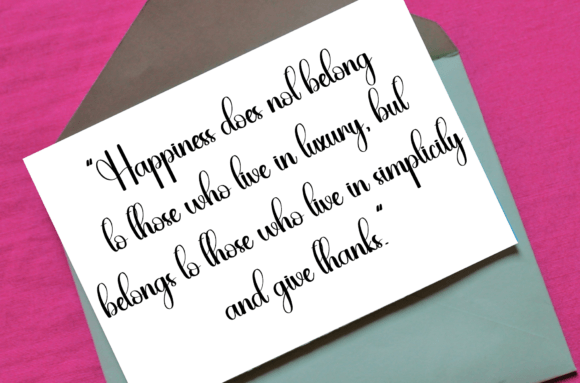 "Happiness does not belong
to those who live in luxury, but
belongs to those who live in simplicity
and give thanks."